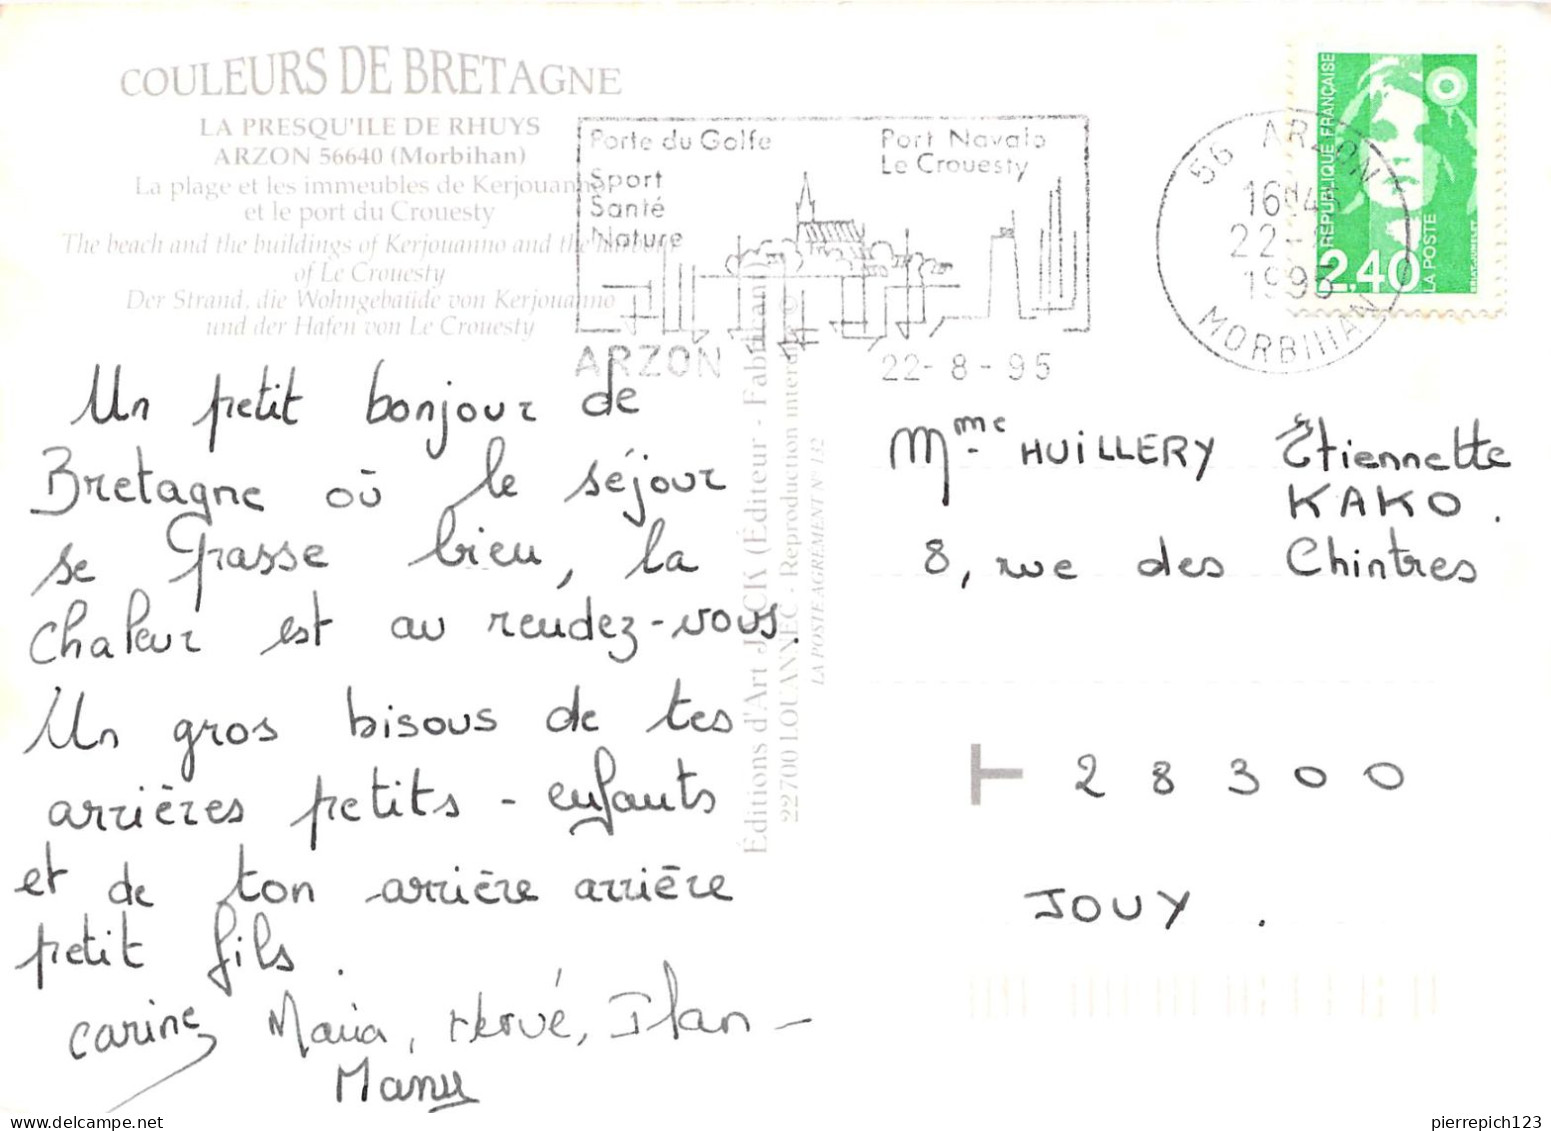 COULEURS DE BRETAGNE
LA PRESQU'ILE DE RHUYS
ARZON 56640 (Morbihan)
La plage et les immeubles de Kerjouanno
et le port du Crouesty
The beach and the buildings of Kerjouanno and the harbour
of Le Crouesty
Der Strand, die Wohngebaüde von Kerjouanno
und der Hafen von Le Crouesty
Un petit bonjour de
Bretagne où le séjour
se passe bien, la
chaleur est au rendez-vous.
Un gros bisous de tes
arrières petits-enfants
et de ton arrière arrière
petit fils.
Carine, Maria, Hervé, Ilan -
Manu
Éditions d'Art JACK (Éditeur - Fabricant)
22700 LOUANNEC - Reproduction interdite ©
LA POSTE AGRÉMENT N° 132
Porte du Golfe
Sport
Santé
Nature
Port Navalo
Le Crouesty
ARZON
22-8-95
56 ARZON
16H45
22-8
1995
MORBIHAN
RÉPUBLIQUE FRANÇAISE
2,40
LA POSTE
Mme HUILLERY Étiennette
KAKO.
8, rue des Chintres
T 28300
JOUY.
pierrepich123